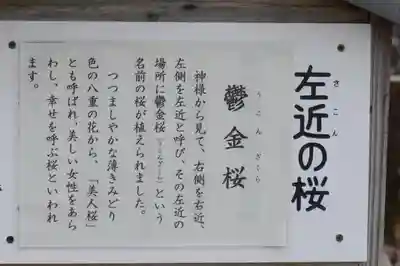 左近の桜
さこん
鬱金桜
うこんざくら
神様から見て、右側を右近、
左側を左近と呼び、その左近の
場所に鬱金桜(うこんざくら)という
名前の桜が植えられました。
つつましやかな薄きみどり
色の八重の花から、「美人桜」
とも呼ばれ、美しい女性をあら
わし、幸せを呼ぶ桜といわれ
ます。